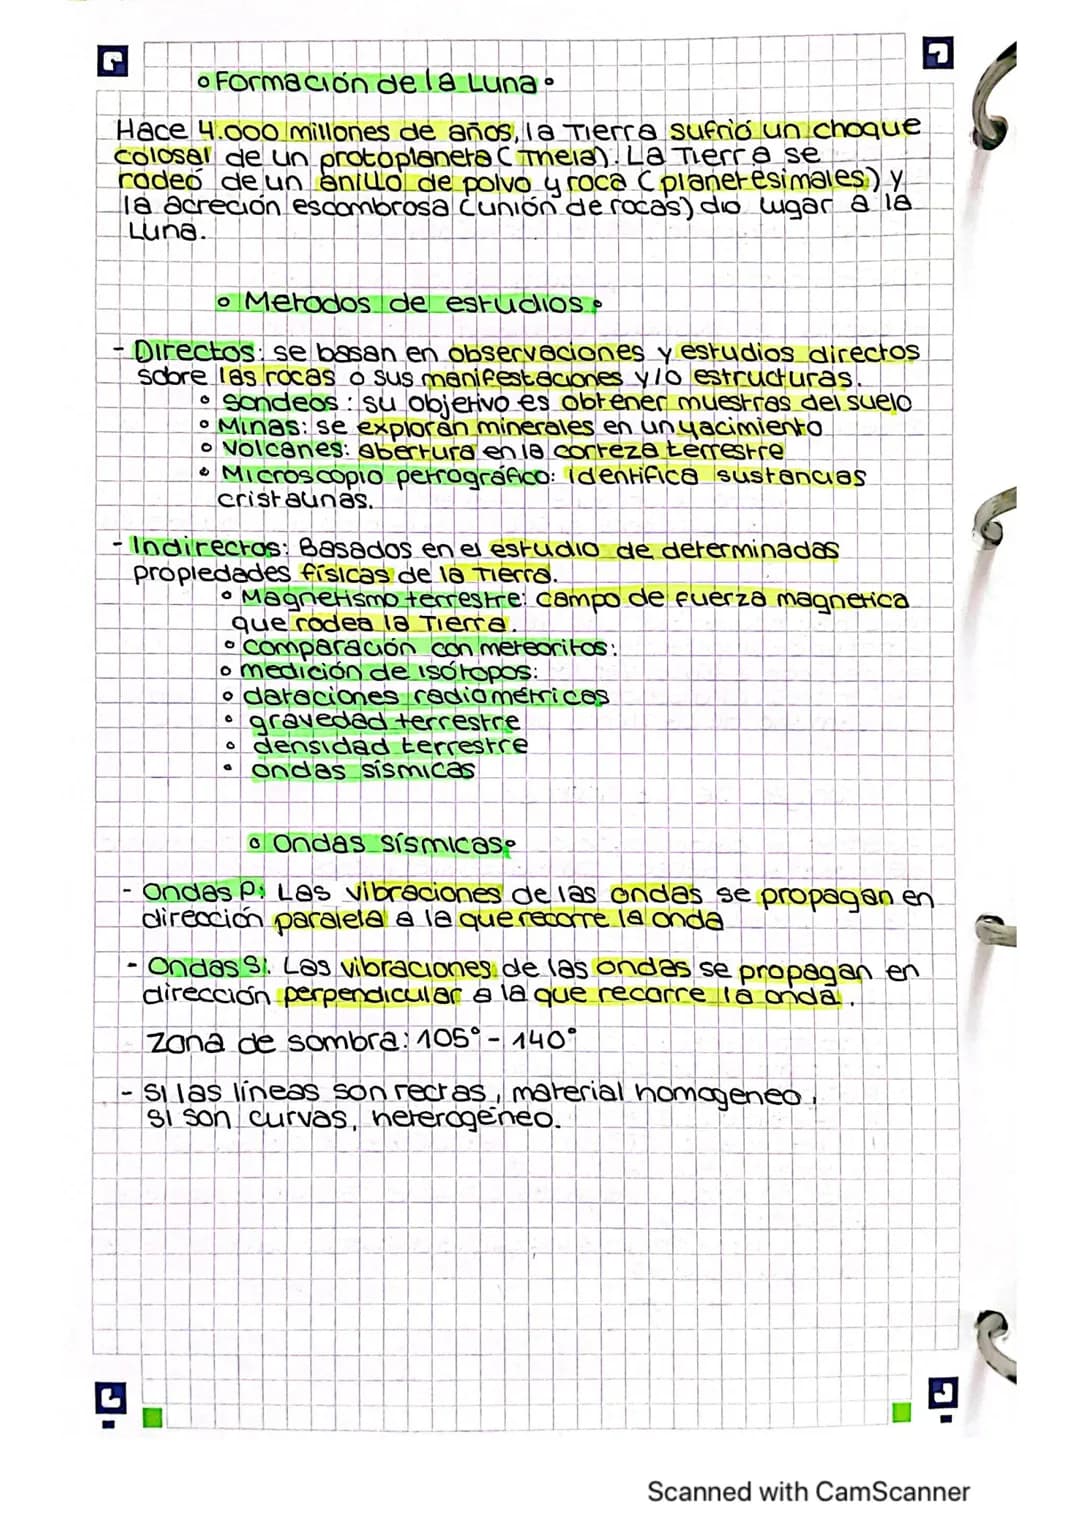 Formación de la Luna
Hace 4.000 millones de años, la Tierra sufrió un choque
colosal de un protoplaneta (Theia). La Tierra se
rodeó de un anillo de polvo y roca (planetésimales) y
la acreción escombrosa (unión de rocas) dio lugar a la
Luna.
Metodos de estudios
- Directos: se basan en observaciones y estudios directos
sobre las rocas o sus manifestaciones y/o estructuras.
• Sondeos: su objetivo es obtener muestras del suelo
• Minas: se exploran minerales en un yacimiento
• Volcanes: abertura en la corteza terrestre
• Microscopio petrográfico: identifica sustancias
cristalinas.
- Indirectos: Basados en el estudio de determinadas
propiedades físicas de la Tierra.
• Magnetismo terrestre: campo de fuerza magnetica
que rodea la Tierra.
• comparación con meteoritos:
• medición de isótopos:
• dataciones radiométricas
• gravedad terrestre
• densidad terrestre
• ondas sísmicas
Ondas sísmicas
- Ondas P: Las vibraciones de las ondas se propagan en
dirección paralela a la que recorre la onda
- Ondas S: Las vibraciones de las ondas se propagan en
dirección perpendicular a la que recorre la onda.
Zona de sombra: 105° - 140°
- Si las líneas son rectas, material homogeneo,
si son curvas, heterogéneo.
Scanned with CamScanner